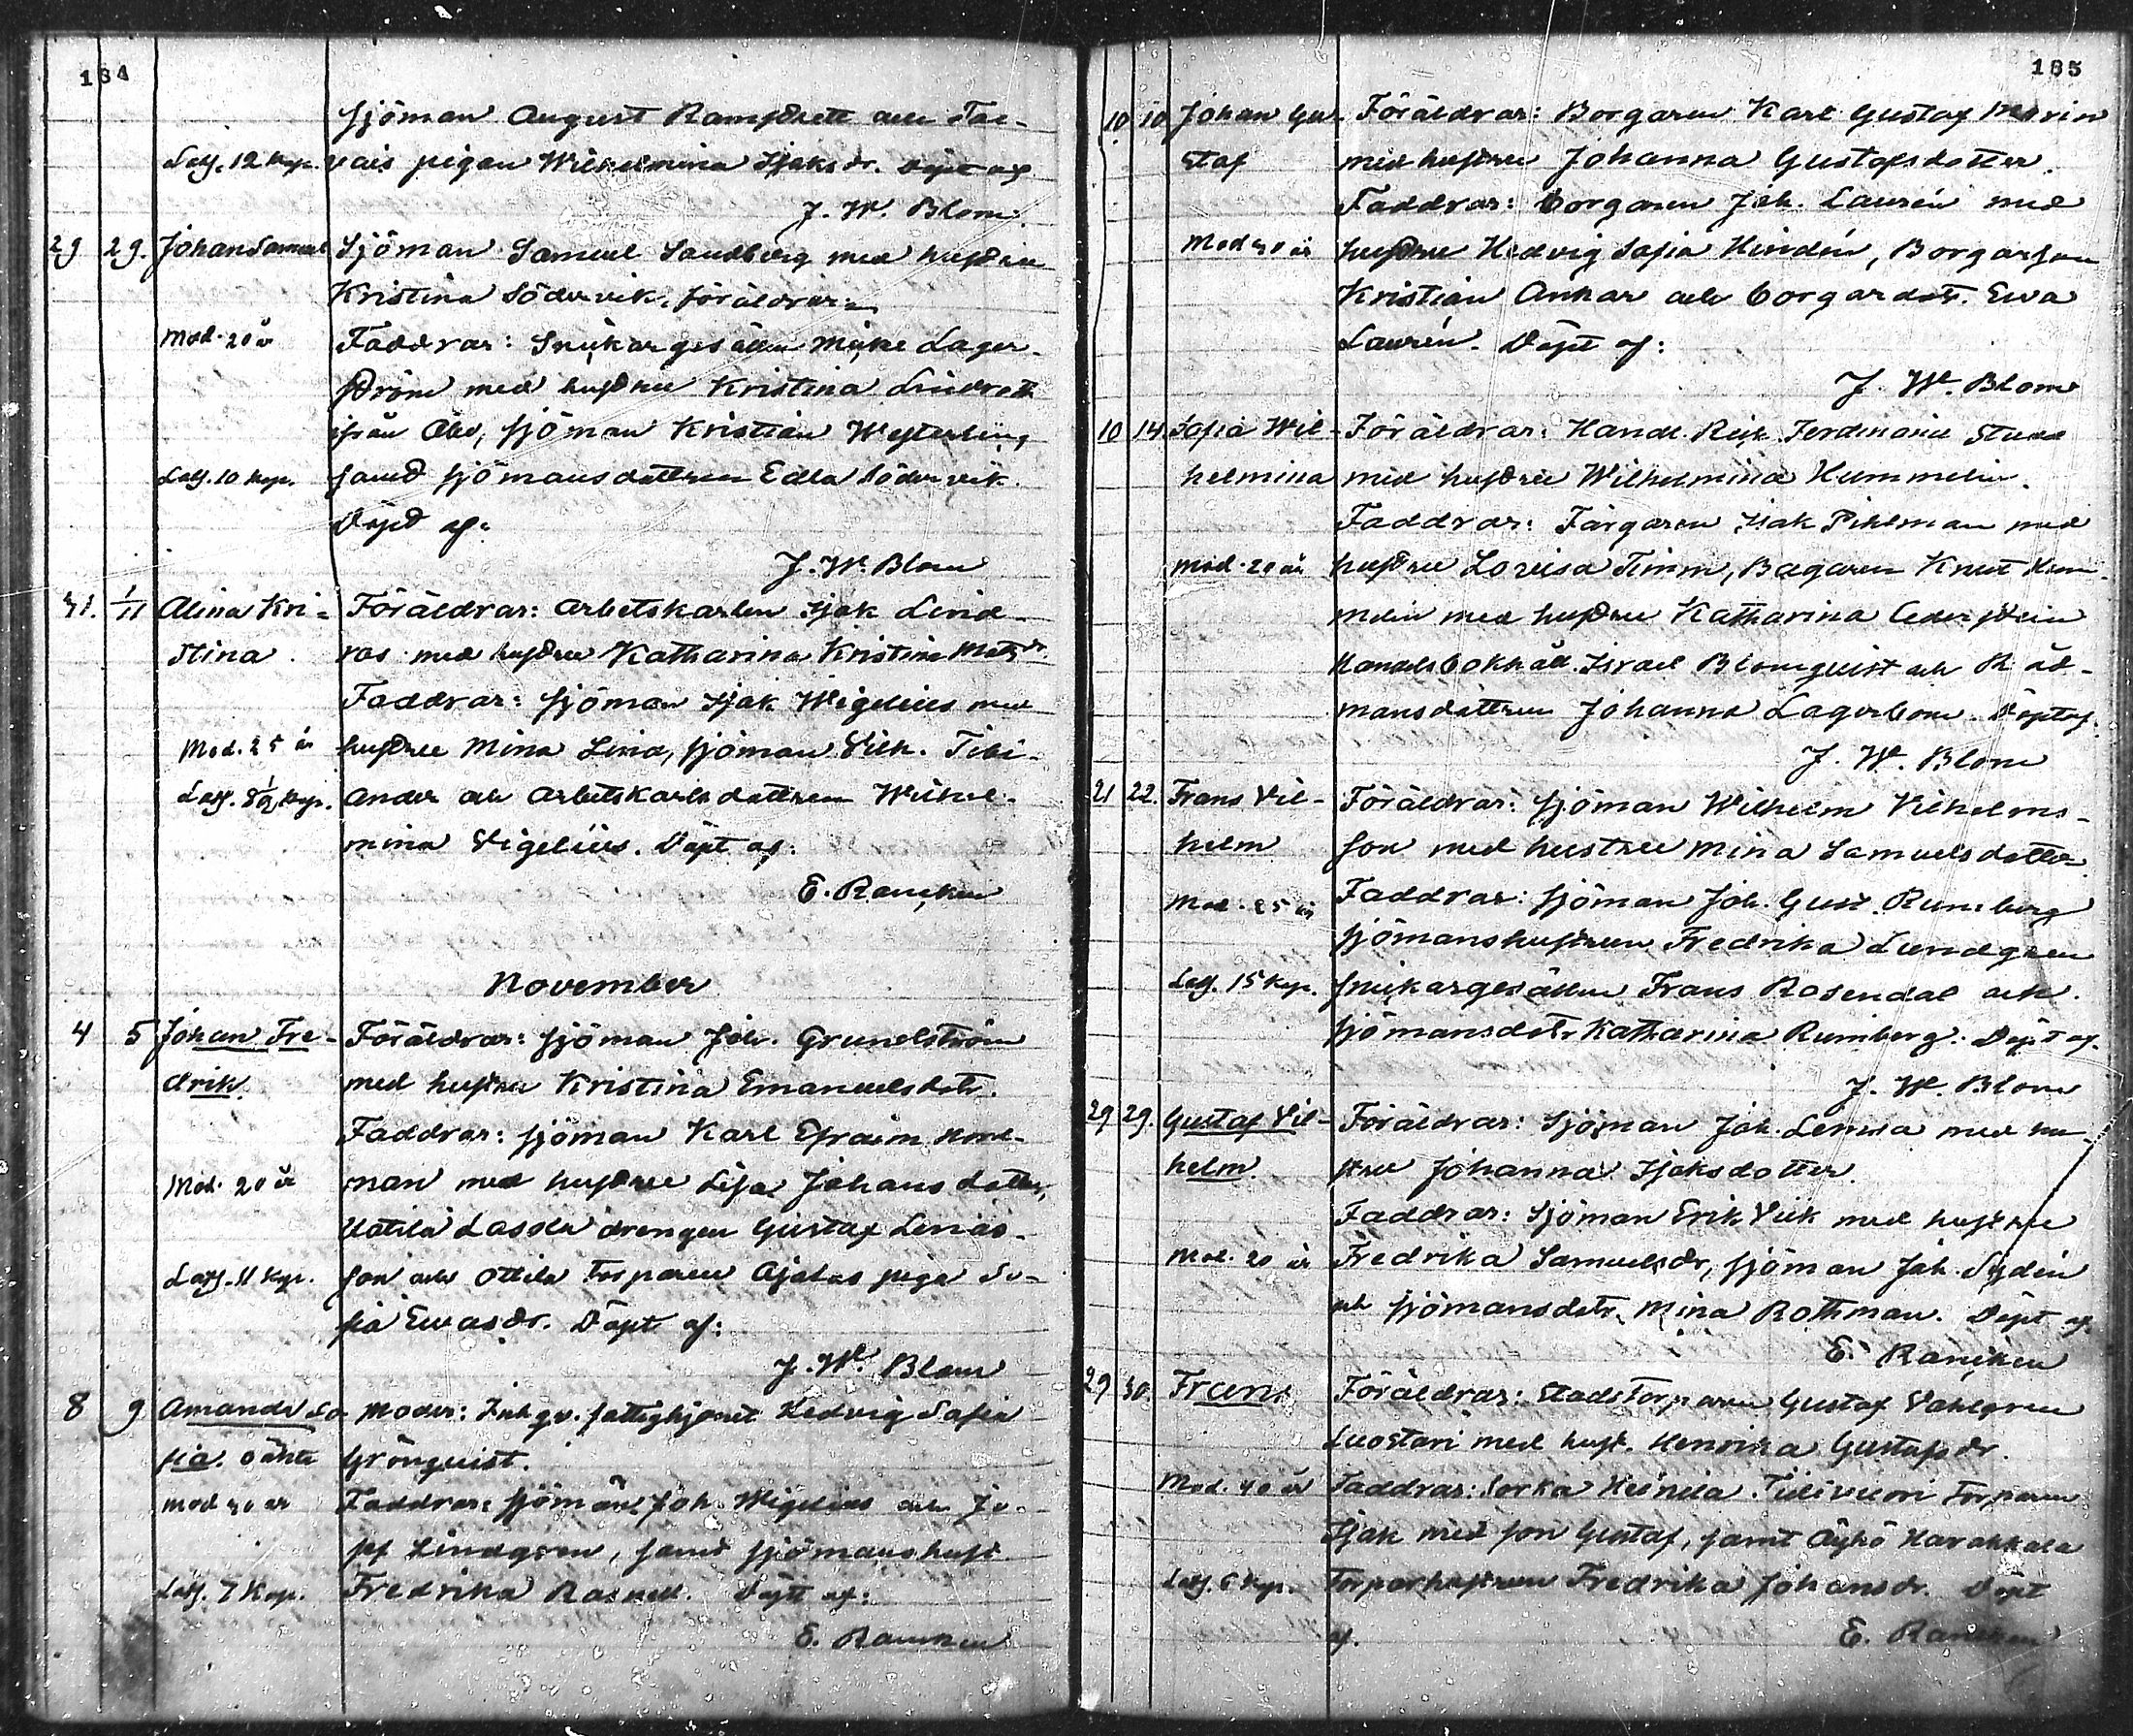 184
sjöman August Ramstedt och Tar-
Lass. 12 kop. vais pigan Wilhelmina Isaksdr. Döpt af
J. W. Blom.
29 29. Johan Samuel Sjöman Samuel Sandberg med hustru
Kristina Södervik, föräldrar.
Mod. 20 år Faddrar: Snickargesällen Mickel Lager-
ström med hustru Kristina Lindroth
ifrån Åbo, sjöman Kristian Westerling
Lass. 10 kop. samt sjömansdottren Edla Södervik.
Döpt af:
J. W. Blom
31. 1/11 Alina Kri- Föräldrar: Arbetskarlen Isak Lind-
stina. ros med hustru Katharina Kristina Matsdr.
Faddrar: sjöman Isak Wigelius med
Mod. 25 år hustru Mina Lind, sjöman Vilh.
Lass. 8½ kop. ander och Arbetskarls dottren Wilhel-
mina Vigelius. Döpt af:
E. Rancken
November
4 5 Johan Fre- Föräldrar: sjöman Joh. Grundström
drik. med hustru Kristina Emanuelsdotr.
Faddrar: sjöman Karl Efraim
Mod. 20 år man med hustru Lisa Johansdotter,
Uotila Lassila drengen Gustaf Linas-
Lass. 11 kop. son och Ottila Torparen Ajalas piga So-
fia Ewasdr. Döpt af:
J. W. Blom
8 9 Amanda So- Moder: Inhgv. fattighjonet Hedvig Sofia
fia. oäkta Grönquist.
mod 30 år Faddrar: sjömän Joh. Wigelius och Jo-
sef Lindgren, samt sjömanshust.
Lass. 7 kop. Fredrika Rasnell. Döpt af:
E. Rancken
185
10 10 Johan Gu- Föräldrar: Borgaren Karl Gustaf Morin
staf med hustru Johanna Gustafsdotter.
Faddrar: borgaren Joh. Laurén med
Mod 30 år hustru Hedvig Sofia Hindén, Borgarson
Kristian Ankar och borgardotr. Ewa
Laurén. Döpt af:
J. W. Blom
10 14 Sofia Wil- Föräldrar: Handl. Ferdinand
helmina med hustru Wilhelmina Hummelin.
Faddrar: Färgaren Isak Pihlman med
mod. 20 år hustru Lovisa Timm, Bagaren Knut Hum-
melin med hustru Katharina Cederstein
Handelsbokhåll. Israel Blomquist och Råd-
mansdottren Johanna Lagerbom. Döpt af:
J. W. Blom
21 22. Frans Vil- Föräldrar: sjöman Wilhelm Vilhelms-
helm son med hustru Mina Samuelsdotter
Mod. 25 år Faddrar: sjöman Joh. Gust. Rumberg
sjömanshustrun Fredrika Lundgren
Lass. 15 kop. snickargesällen Frans Rosendal och
sjömansdotr. Katharina Rumberg. Döpt af.
J. W. Blom
29 29. Gustaf Vil- Föräldrar: Sjöman Joh. med hu-
helm. stru Johanna Isaksdotter.
Faddrar: Sjöman Erik Vik med hustru
Mod. 20 år Fredrika Samuelsdr, sjöman Joh. Sydén
och sjömansdotr. Mina Rothman. Döpt af.
E. Rancken
29 30. Frans Föräldrar: Stadstorparen Gustaf Vahlgren
Luostari med hust. Henrika Gustafsdr.
Mod. 40 år Faddrar: Sorka Heinila Torparen
Isak med son Gustaf, samt Äyhö Harakkala
Lass. 6 kop. Torparhustrun Fredrika Johansdr. Döpt
af. E. Rancken